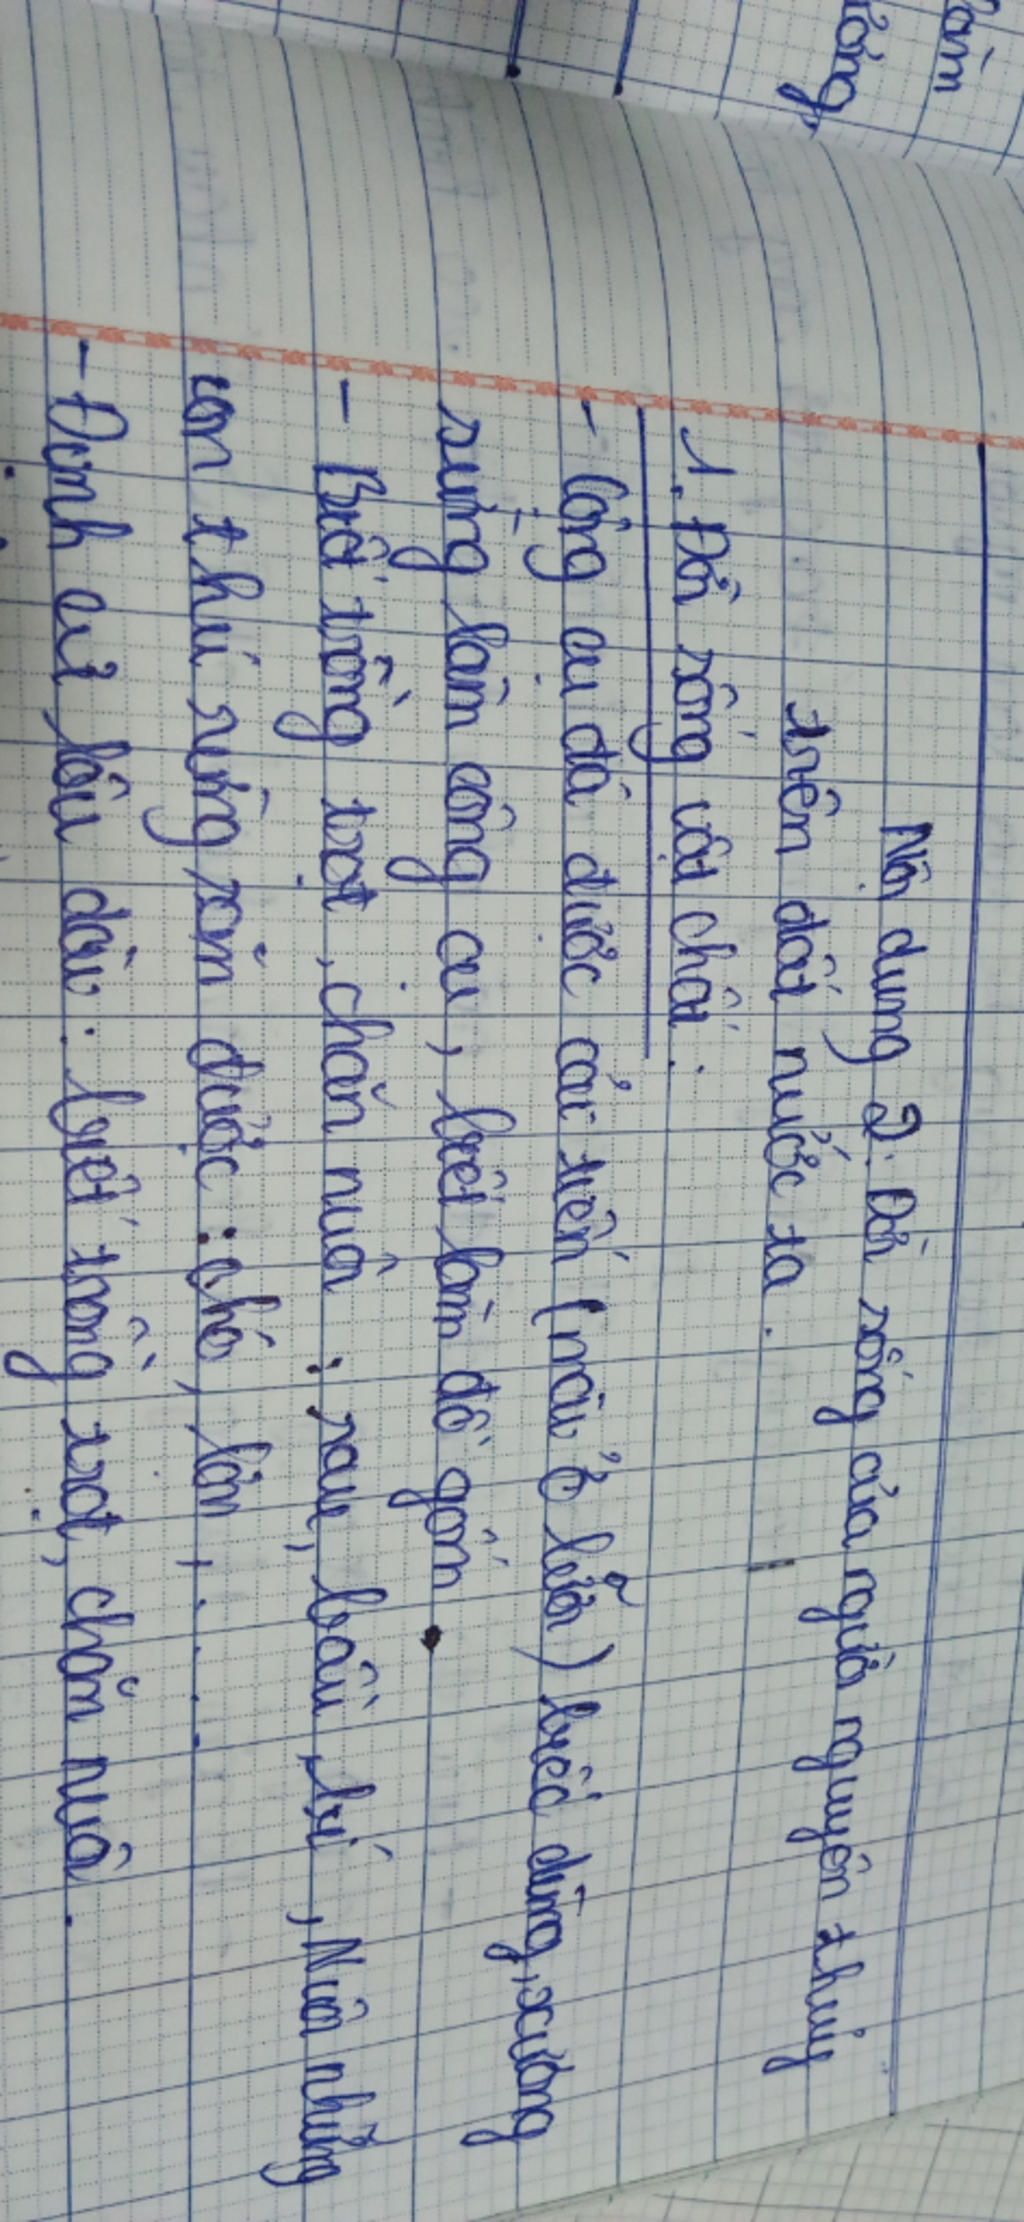 làm
ương,
Nội dung 2: Đời sống của người nguyên thủy
trên đất nước ta.
1. Đời sống vật chất:
- Công cụ đá được cải tiến (mài ở lưỡi) biết dùng, xương
sừng làm công cụ, biết làm đồ gốm.
- Biết trồng trọt, chăn nuôi: rau, bầu, bí, Nuôi những
con thú rừng săn được: chó, lợn,...
- Định cư lâu dài: biết trồng trọt, chăn nuôi.